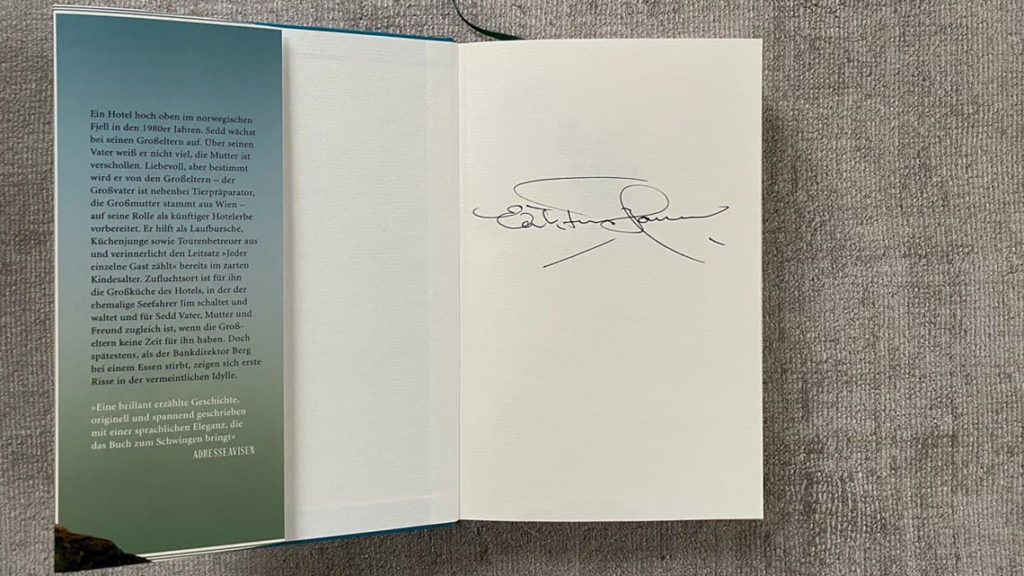 Ein Hotel hoch oben im norwegischen
Fjell in den 1980er Jahren. Sedd wächst
bei seinen Großeltern auf. Über seinen
Vater weiß er nicht viel, die Mutter ist
verschollen. Liebevoll, aber bestimmt
wird er von den Großeltern – der
Großvater ist nebenbei Tierpräparator,
die Großmutter stammt aus Wien –
auf seine Rolle als künftiger Hotelerbe
vorbereitet. Er hilft als Laufbursche,
Küchenjunge sowie Tourenbetreuer aus
und verinnerlicht den Leitsatz »Jeder
einzelne Gast zählt« bereits im zarten
Kindesalter. Zufluchtsort ist für ihn
die Großküche des Hotels, in der der
ehemalige Seefahrer Jim schaltet und
waltet und für Sedd Vater, Mutter und
Freund zugleich ist, wenn die Groß-
eltern keine Zeit für ihn haben. Doch
spätestens, als der Bankdirektor Berg
bei einem Essen stirbt, zeigen sich erste
Risse in der vermeintlichen Idylle.
»Eine brillant erzählte Geschichte,
originell und spannend geschrieben
mit einer sprachlichen Eleganz, die
das Buch zum Schwingen bringt«
ADRESSEAVISEN